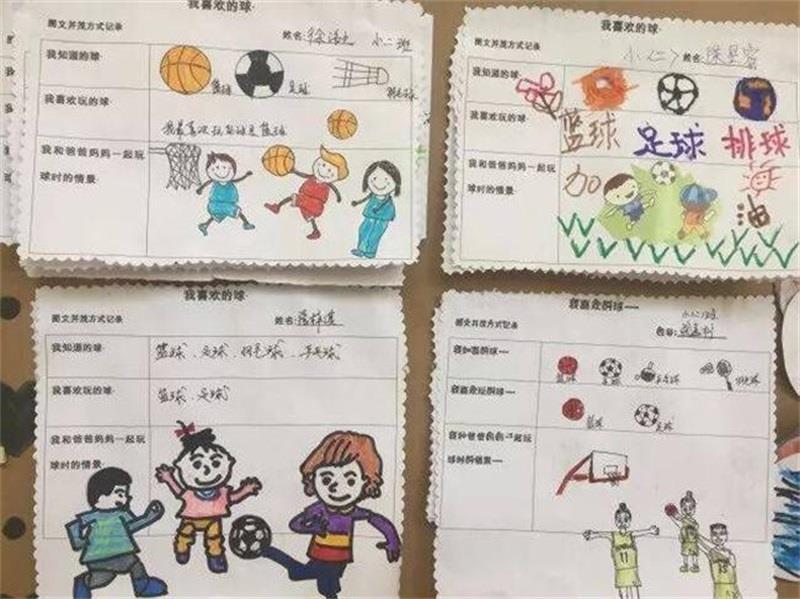 我喜欢的球
图文并茂方式记录
姓名: 小二班
我知道的球
篮球 足球 羽毛球
我喜欢玩的球
我最喜欢玩的球是篮球
我和爸爸妈妈一起玩
球时的情景
我喜欢的球
图文并茂方式记录
小(二) 姓名:
我知道的球
我喜欢玩的球
篮球 足球 排球
我和爸爸妈妈一起玩
球时的情景
加 油
我喜欢的球
图文并茂方式记录
姓名:
我知道的球
篮球、足球、羽毛球、乒乓球
我喜欢玩的球
篮球、足球
我和爸爸妈妈一起玩
球时的情景
图文并茂方式记录
小(二)班
篮球 足球 乒乓球 羽毛球
篮球 足球
11